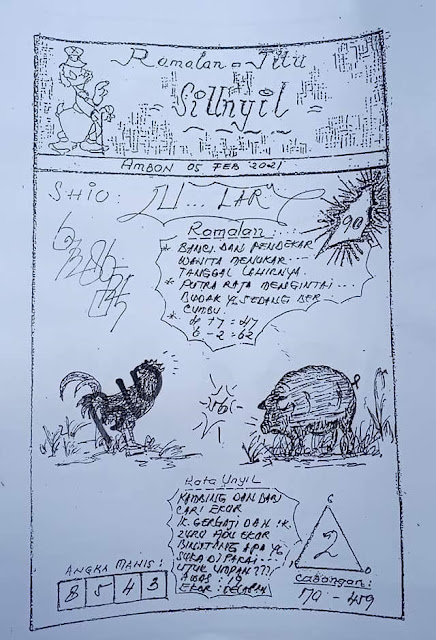 Ramalan - Jitu
Si Unyil
AMBON 05 FEB 2021
SHIO : U... LAR
90
Ramalan :
* BANCI DAN PENDEKAR
WANITA MENUKAR ...
TANGGAL LAHIRNYA.
* PUTRA RAJA MENGINTAI ...
BUDAK YG SEDANG BER
CUMBU.
* 4 + 7 : 47
6 - 2 : 62
16
Kata Unyil
KAMBING DAN BABI
CARI EKOR
ADU EKOR
BINATANG APA YG
SUKA DI PAKAI
UTUK UMPAN ???
AWAS : 19
EKOR :
ANGKA MANIS :
8 5 4 3
6
2
0
Cabangan :
70 - 459